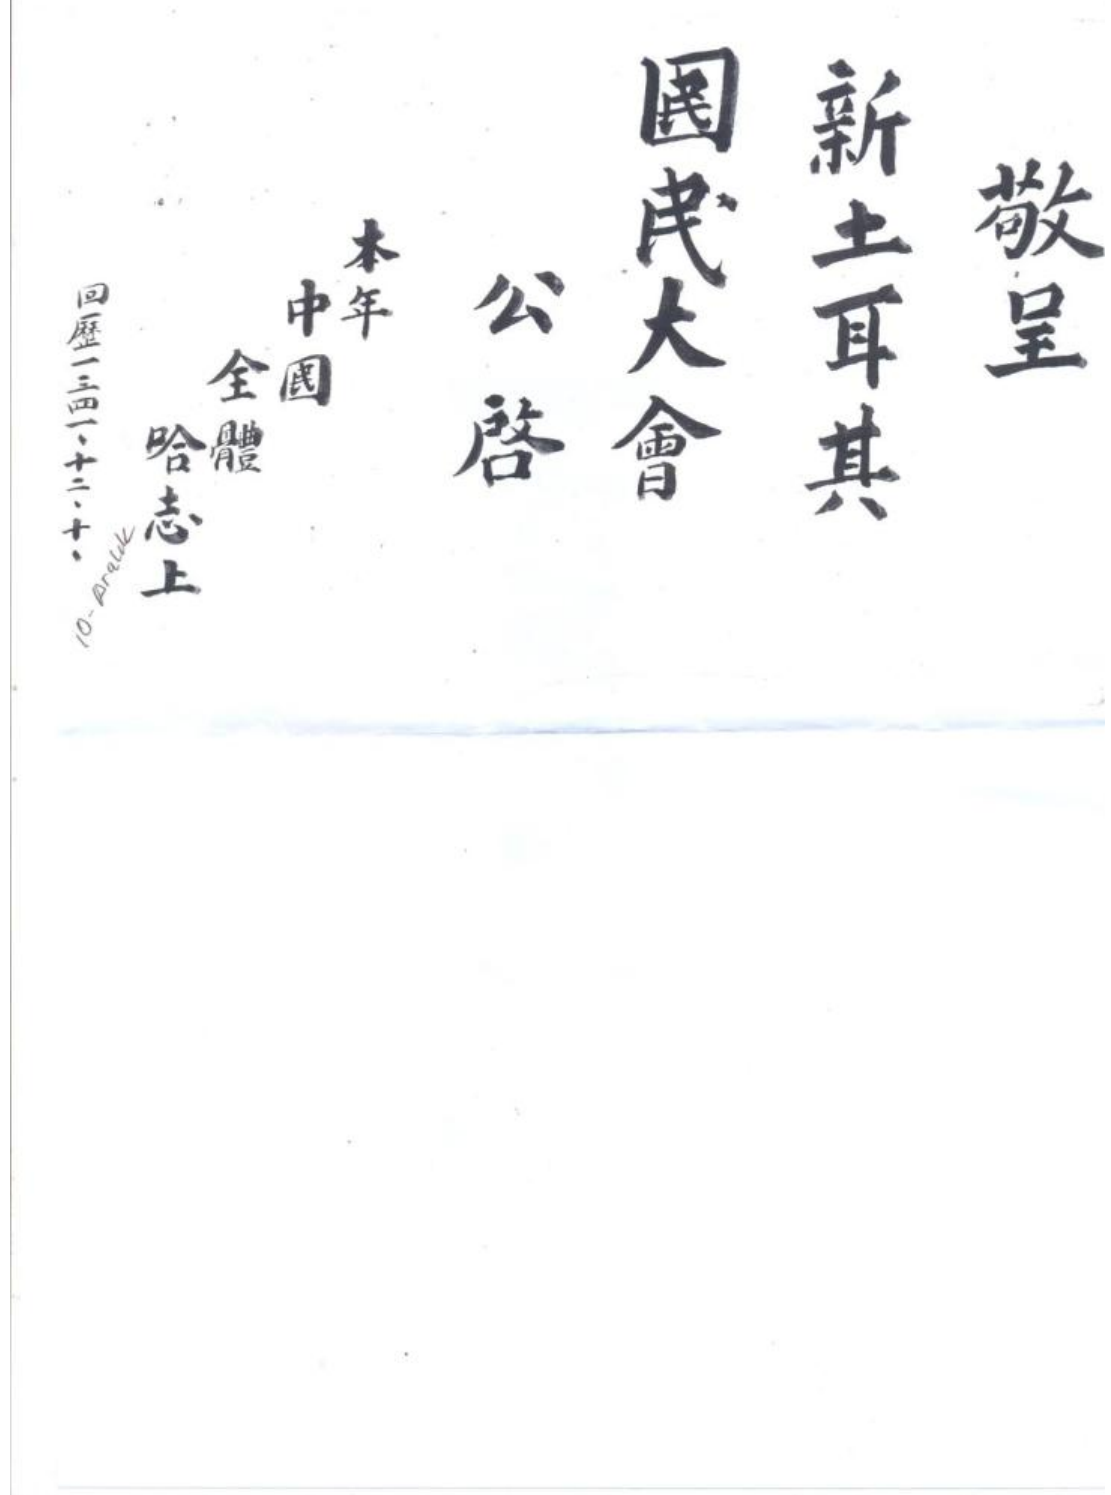 敬呈
新土耳其
國民大會
公啓
本年
中國
全體
哈志上
回歷一三四一、十二、十、
10-Aralık